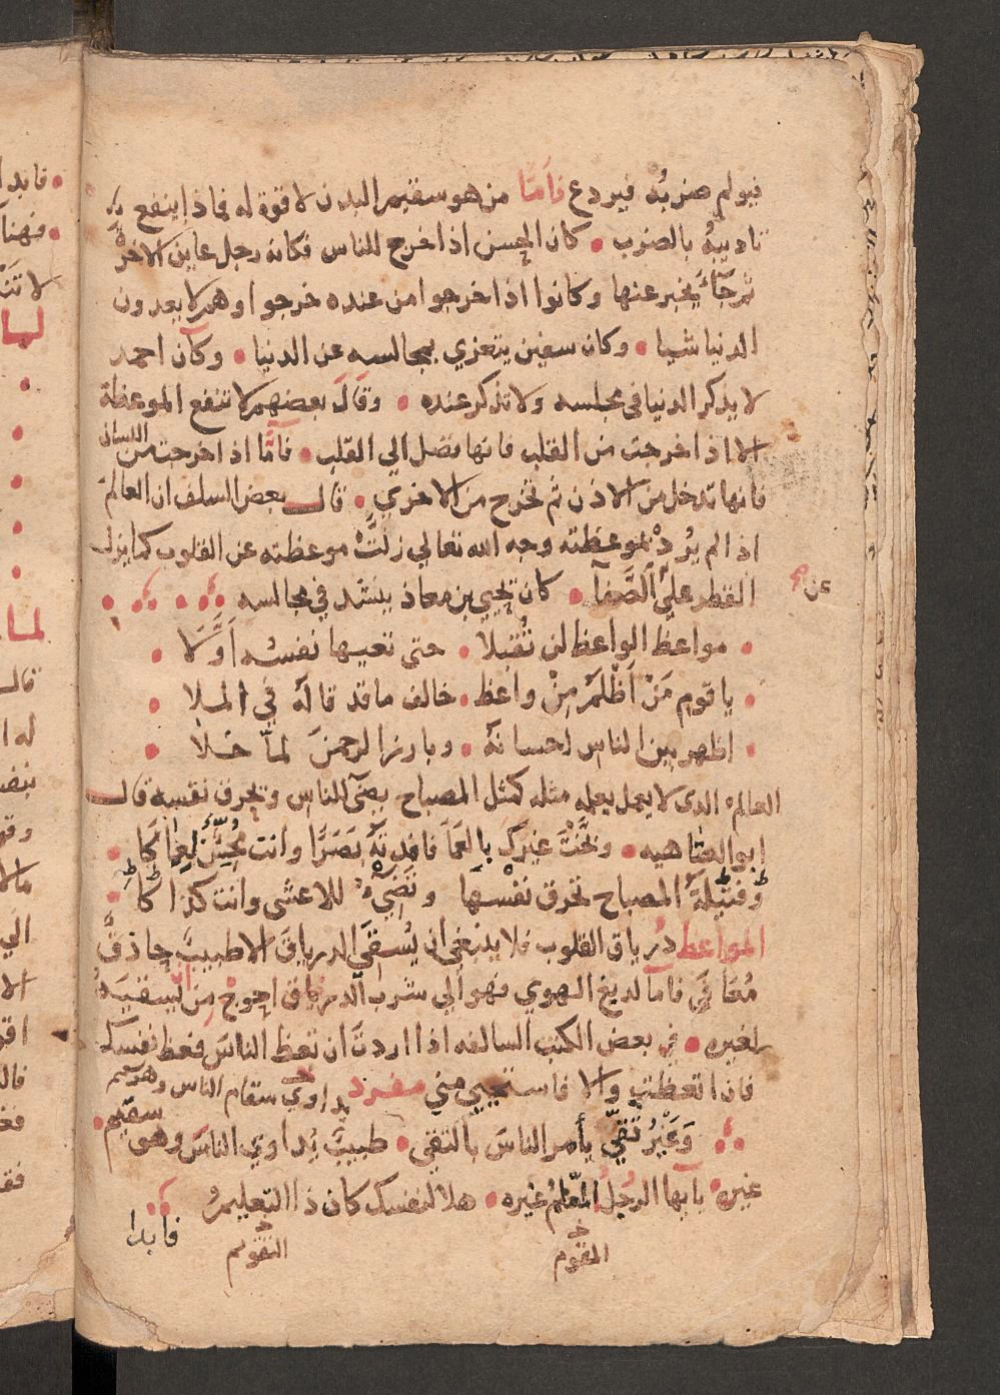 فيولم ضربُه فيردع فأمّا من هو سقيم البدن لا قوة له فماذا ينفع به
تاديبهُ بالضرب • كان الحسن اذا خرج للناس فكانه رجل عاين الاخرة
ثم جآء يخبر عنها وكانوا اذا خرجوا من عنده خرجوا وهم لا يعدون
الدنيا شيا • وكان سفين يتعزي بمجالسه عن الدنيا • وكان احمد
لا يذكر الدنيا في مجلسه ولا تذكر عنده • وقال بعضهم لا تنفع الموعظة
الا اذا خرجت من القلب فانها تصل الي القلب • فأمّا اذا خرجت من اللسان
فانها تدخل من الاذن ثم تخرج من الاخري • قال بعض السلف ان العالم
اذا لم يُردْ بموعظته وجه الله تعالي زلّتْ موعظته عن القلوب كما يزل
القطر علي الصَّفا • كان يحيي بن معاذ ينشد في مجالسه
عن
• مواعظ الواعظ لن تُقبلا • حتي تعيها نفسه اوّلا •
• يا قوم مَنْ اظْلمُ مِنْ واعظ • خالف ما قد قاله في الملا •
• اظهر بين الناس احسانهُ • وبارز الرحمن لمّا خلا •
العالم الذي لا يعمل بعلمه مثله كمثل المصباح يضئ للناس ويحرق نفسه قال
ابو العتاهيه • وبّختَ غيرك بالعَمَا فافدتهُ بَصَرًا وانت مُحسّن لعماكا •
وفتيلة المصباح تحرق نفسها وتضيءُ للاعشي وانت كذاكا •
المواعظ درياق القلوب فلا ينبغي ان يُسقَي الدرياقَ الا طبيبٌ حاذقٌ
مُعَافَي فأما لديغ الهوي فهو الي شرب الدرياق احوجُ من ان يسقيَهُ
لغيره • في بعض الكتب السالفه اذا اردتَ ان تعظ الناسَ فعظ نفسك
فان اتعظت والا فاستحيي مني مفرد يداوي سقام الناس وهو سقيم
وَغَيْرُ تقيّ يأمر الناسَ بالتقي • طبيبٌ يُداوي الناسَ وهو سقيم •
غيره • يا ايها الرجُل المعّلمُ غيره • هلا لنفسك كان ذا التعليمُ
المقوم التقويم
فابدا